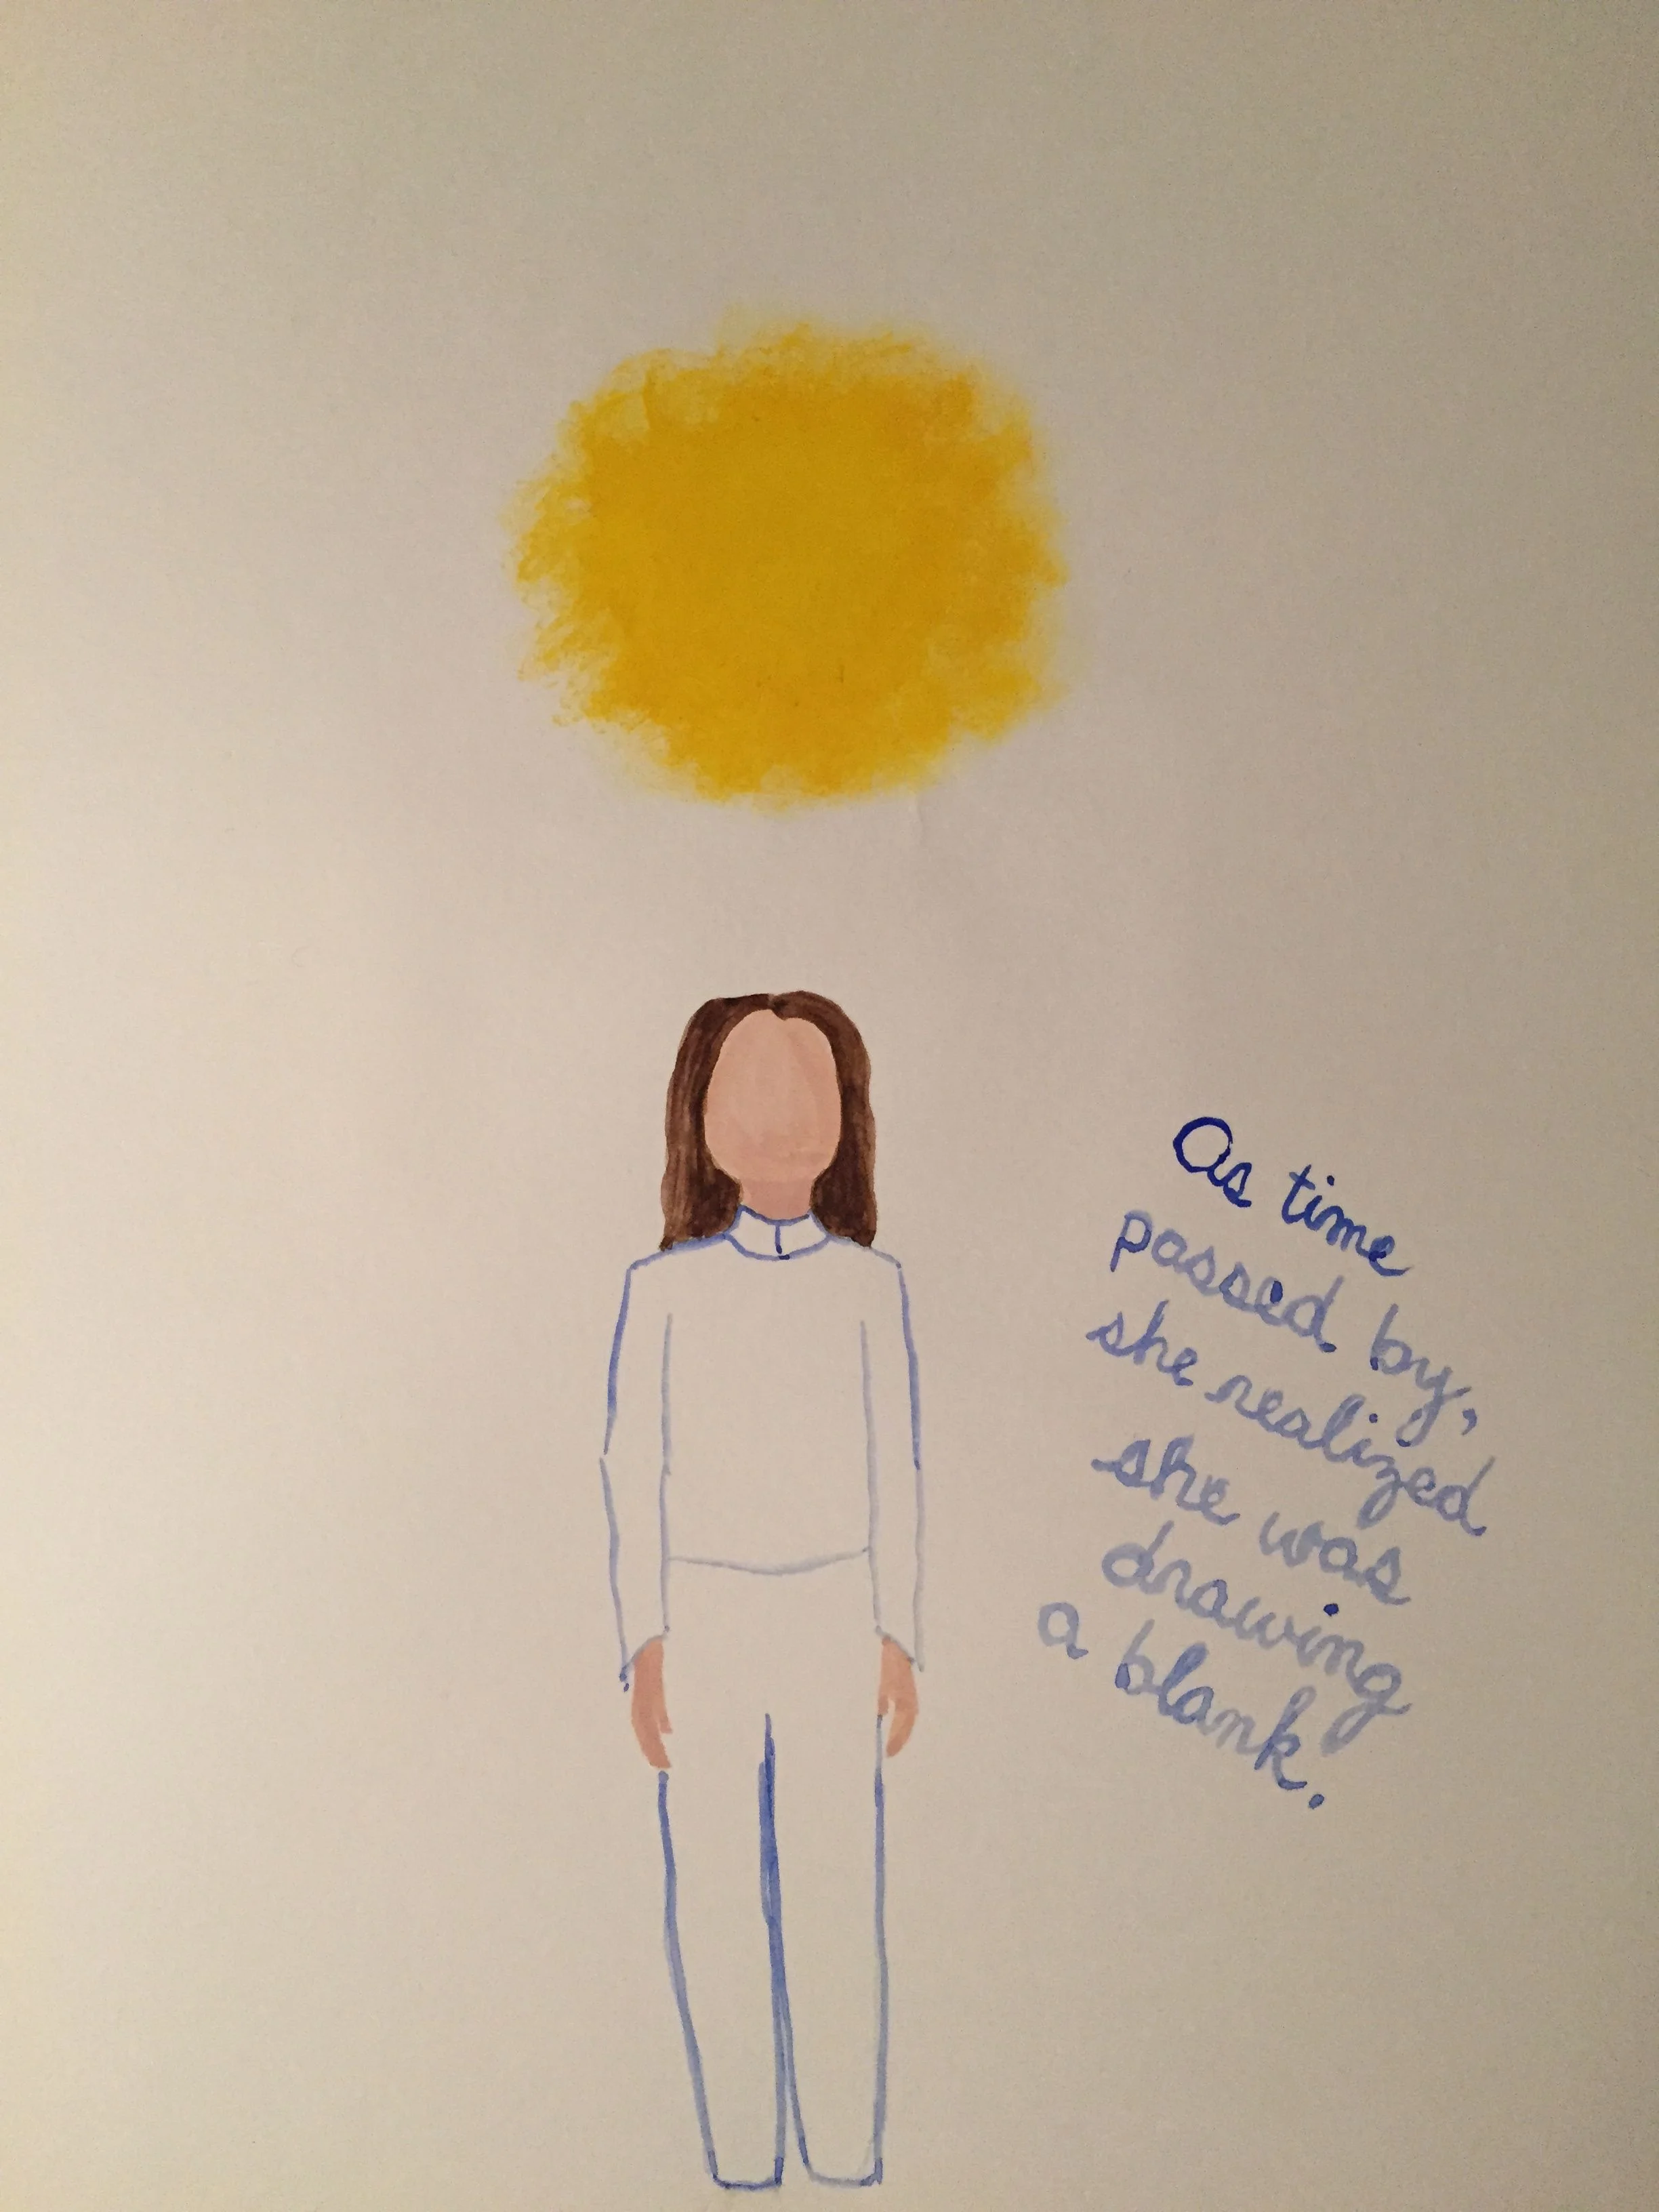 As time
passed by,
she realized
she was
drawing
a blank.